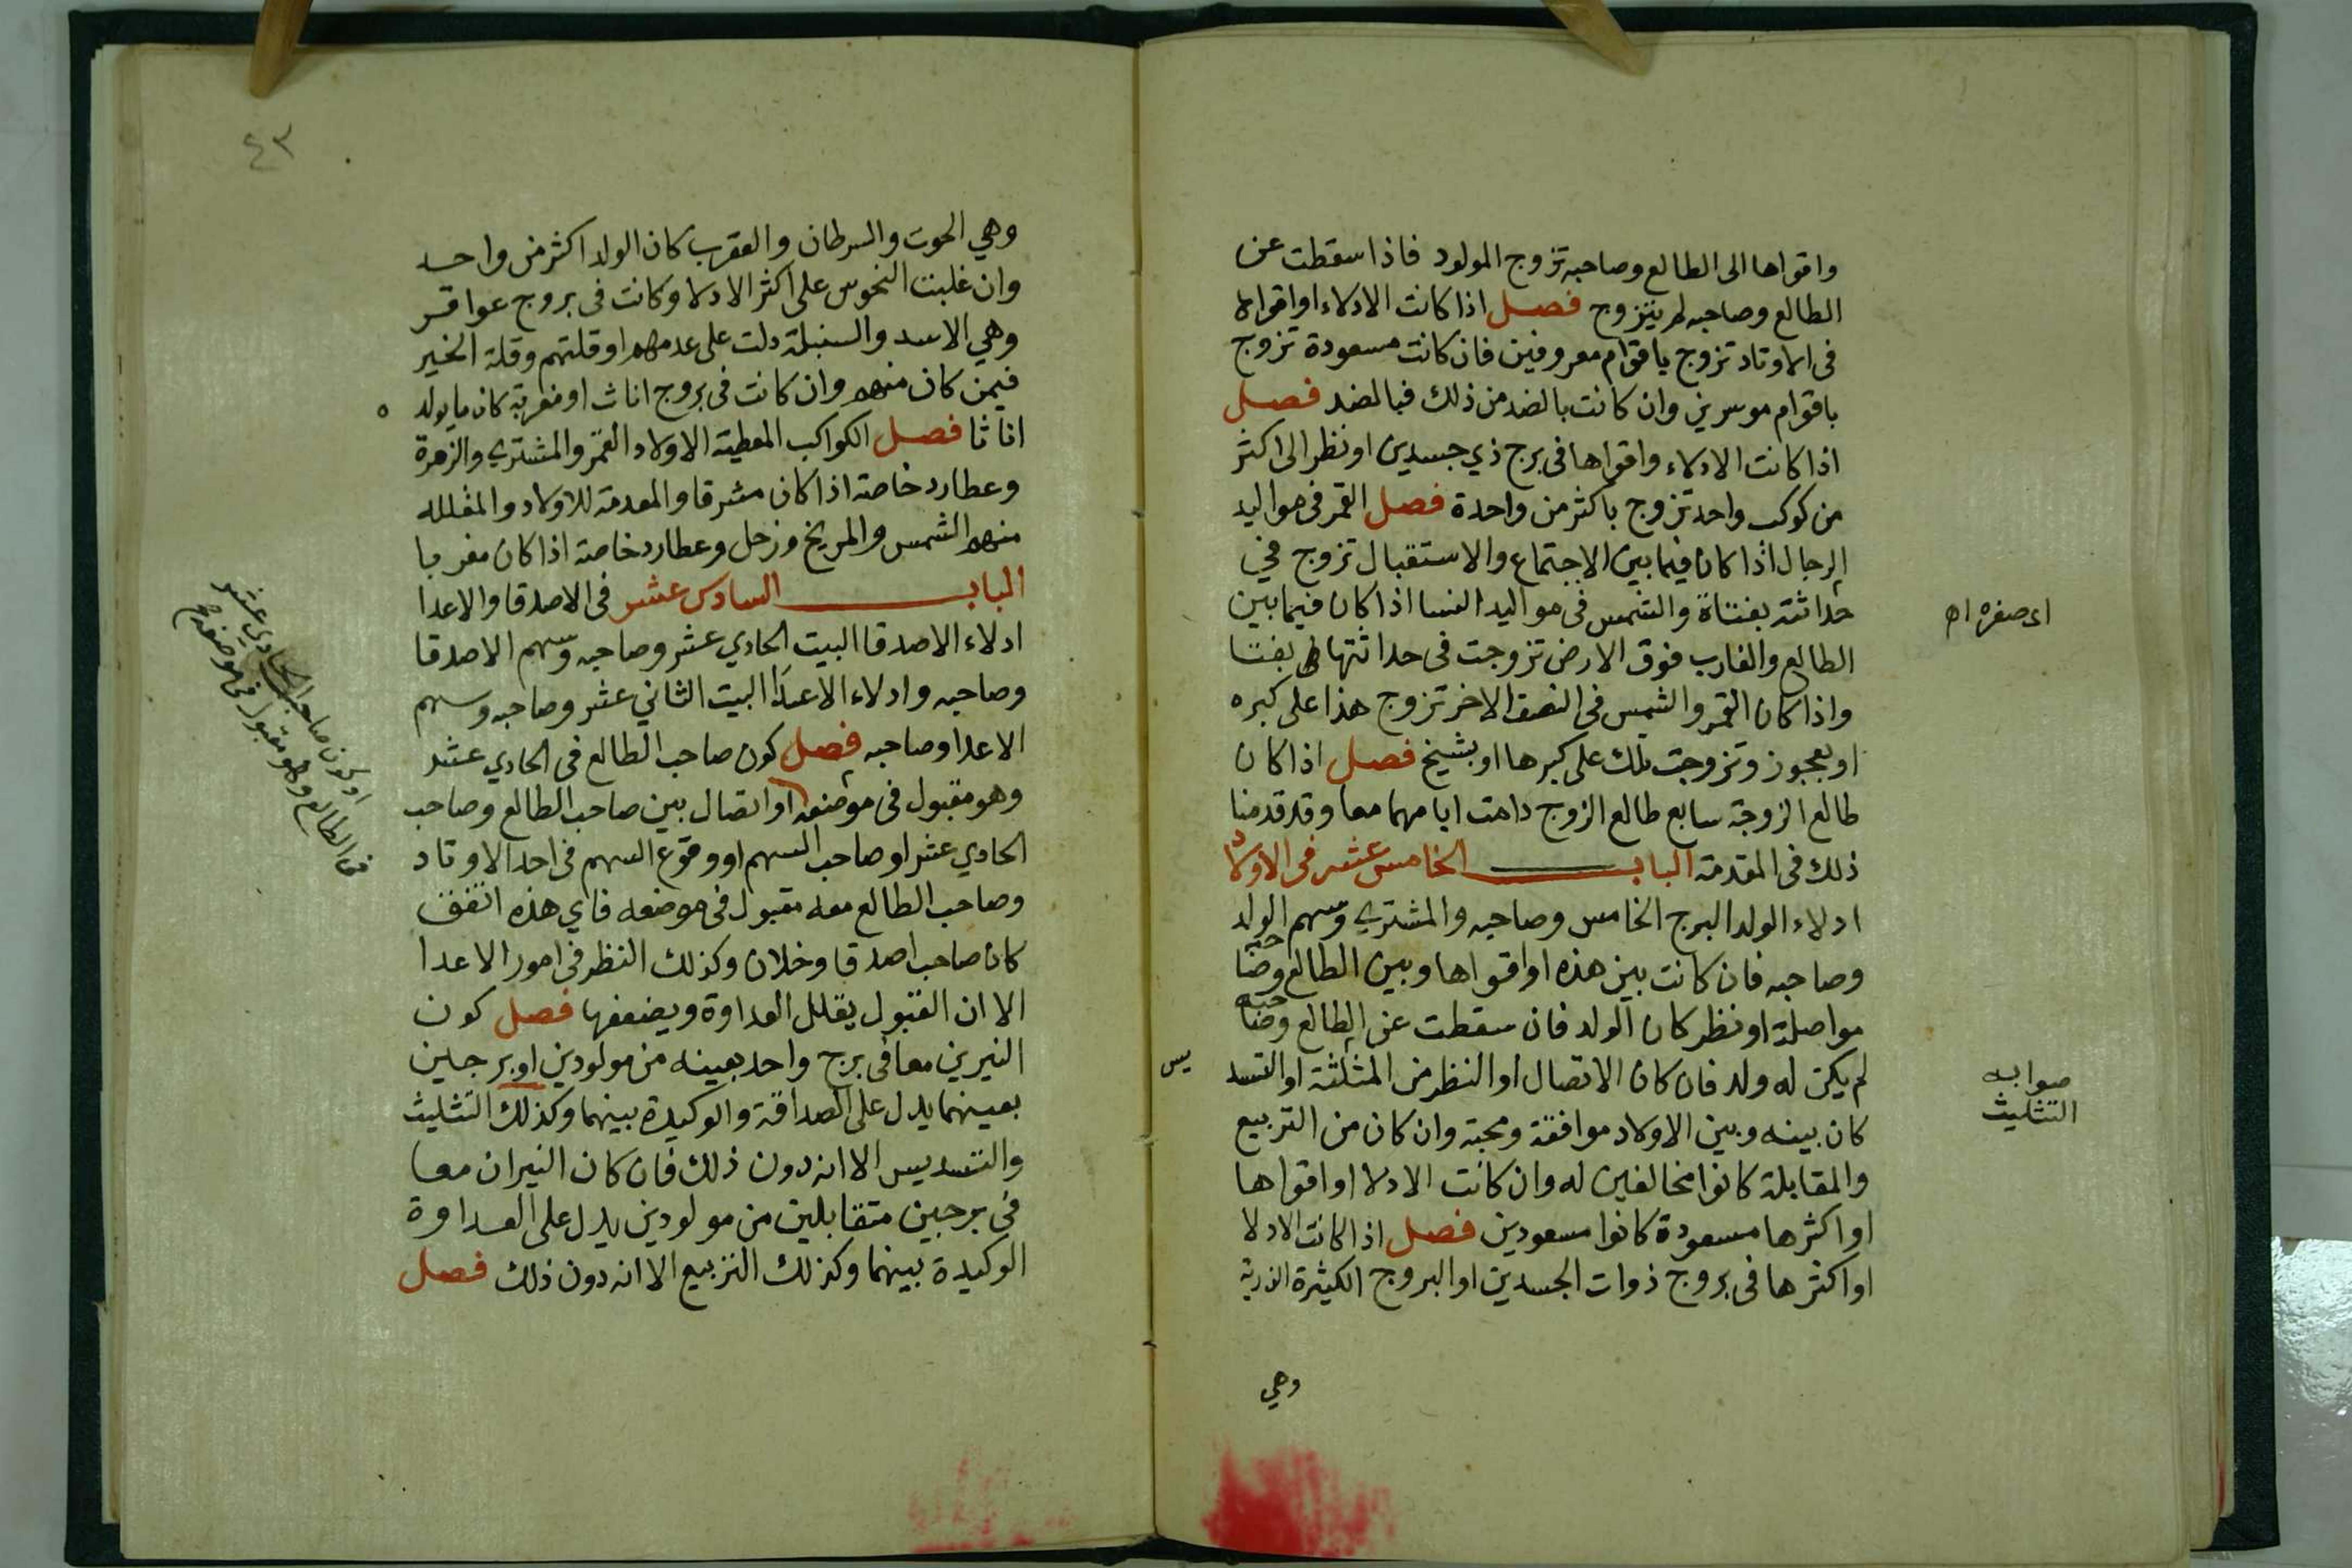 واقواها الى الطالع وصاحبه تزوج المولود فاذا سقطت عن
الطالع وصاحبه لم يتزوج فصل اذا كانت الادلاء او اقواها
فى الاوتاد تزوج باقوام معروفين فان كانت مسعودة تزوج
باقوام موسرين وان كانت بالضد من ذلك فبالضد فصل
اذا كانت الادلاء واقواها فى برج ذي جسدين او نظر الى اكثر
من كوكب واحد تزوج باكثر من واحدة فصل القمر فى مواليد
الرجال اذا كان فيما بين الاجتماع والاستقبال تزوج في
حداثته بفتاة والشمس فى مواليد النسا اذا كان فيما بين
اى صغره اه
الطالع والغارب فوق الارض تزوجت فى حداثتها بفتا
واذا كان القمر والشمس فى النصف الاخر تزوج هذا على كبره
او بعجوز وتزوجت تلك على كبرها او بشيخ فصل اذا كان
طالع الزوجة سابع طالع الزوج دامت ايامهما معا وقد قدمنا
ذلك فى المقدمة الباب الخامس عشر فى الاولاد
ادلاء الولد البرج الخامس وصاحبه والمشترى وسهم الولد
وصاحبه فان كانت بين هذه او اقواها وبين الطالع وصاحبه
مواصلة او نظر كان الولد فان سقطت عن الطالع وصاحبه
لم يكن له ولد فان كان الاتصال او النظر من المثلثة او التسديس
صوابه
التثليث
كان بينه وبين الاولاد موافقة ومحبة وان كان من التربيع
والمقابلة كانوا مخالفين له وان كانت الادلا او اقواها
او اكثرها مسعودة كانوا مسعودين فصل اذا كانت الادلا
او اكثرها فى بروج ذوات الجسدين او البروج الكثيرة الذرية
وهي
٤٣
وهي الحوت والسرطان والعقرب كان الولد اكثر من واحد
وان غلبت النحوس على اكثر الادلا وكانت فى بروج عواقر
وهي الاسد والسنبلة دلت على عدمهم او قلتهم وقلة الخير
فيمن كان منهم وان كانت فى بروج اناث او مغربة كان ما يولد
اناثا فصل الكواكب المعطية الاولاد القمر والمشترى والزهرة
وعطارد خاصة اذا كان مشرقا والمعدمة للاولاد والمقللة
منهم الشمس والمريخ وزحل وعطارد خاصة اذا كان مغربا
الباب السادس عشر فى الاصدقا والاعدا
ادلاء الاصدقا البيت الحادي عشر وصاحبه وسهم الاصدقا
وصاحبه وادلاء الاعدا البيت الثاني عشر وصاحبه وسهم
الاعدا وصاحبه فصل كون صاحب الطالع فى الحادي عشر
وهو مقبول فى موضعه او اتصال بين صاحب الطالع وصاحب
او كون صاحب الحادى عشر
فى الطالع وهو مقبول فى موضعه
الحادي عشر او صاحب السهم او وقوع السهم فى احد الاوتاد
وصاحب الطالع معه مقبول فى موضعه فاي هذه اتفق
كان صاحب اصدقا وخلان وكذلك النظر فى امور الاعدا
الا ان القبول يقلل العداوة ويضعفها فصل كون
النيرين معا فى برج واحد بعينه من مولودين او برجين
بعينهما يدل على الصداقة والوكيدة بينهما وكذلك التثليث
والتسديس الا انه دون ذلك فان كان النيران معا
فى برجين متقابلين من مولودين يدل على العداوة
الوكيدة بينهما وكذلك التربيع الا انه دون ذلك فصل